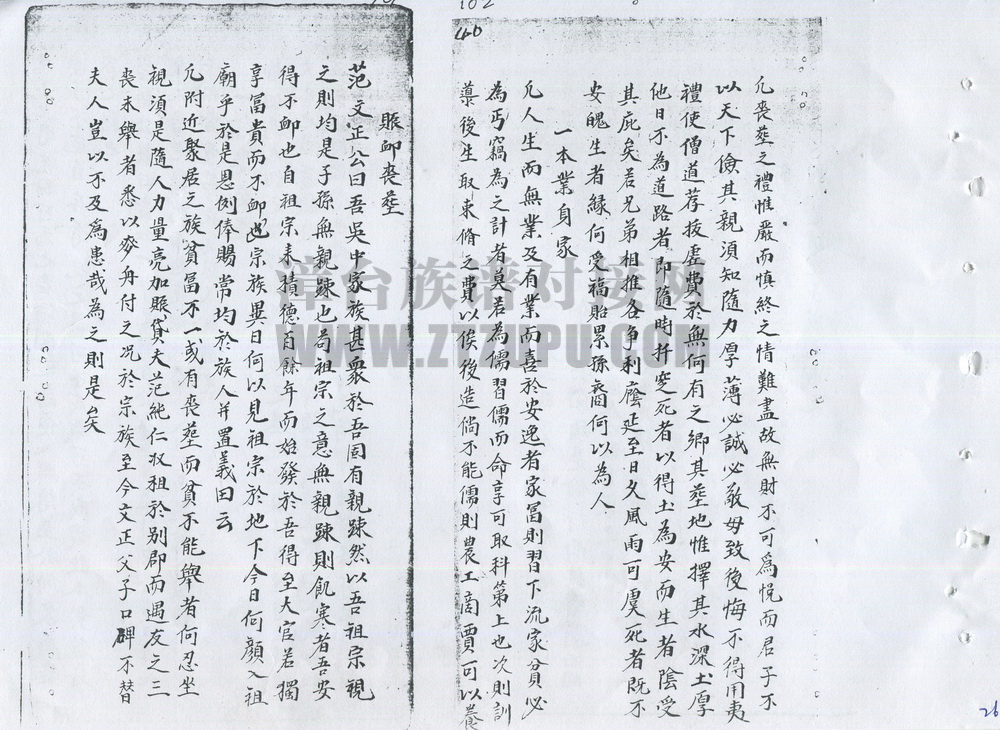 凢喪塟之禮惟嚴而慎終之情難盡故無財不可爲悅而君子不
以天下儉其親須知隨力厚薄必誠必敬毋致後悔不得用夷
禮使僧道荐拔虛費於無何有之鄉其塟地惟擇其水深土厚
他日不為道路者即隨時扦窆死者以得土為安而生者陰受
其庇矣若兄弟相推各爭利廕延至日久風雨可虞死者既不
安魄生者緣何受福貽累孫裔何以為人
一本業身家
凢人生而無業及有業而喜於安逸者家冨則習下流家貧必
為丐竊為之計者莫若為儒習儒而命享可取科第上也次則訓
蒙後生取束脩之費以俟後造倘不能儒則農工商賈可以養
賑卹喪塟
范文正公曰吾吳中家族甚衆於吾固有親踈然以吾祖宗視
之則均是子孫無親踈也苟祖宗之意無親踈則飢寒者吾安
得不卹也自祖宗来積德百餘年而始發於吾得至大官若獨
享冨貴而不卹宗族異日何以見祖宗於地下今日何顏入祖
廟乎於是恩例俸賜常均於族人并置義田云
凢附近聚居之族貧冨不一或有喪塟而貧不能舉者何忍坐
視須是隨人力量亮加賑貸夫范純仁収租於别郡而遇友之三
喪未舉者悉以麥舟付之况於宗族至今文正父子口碑不替
夫人豈以不及爲患哉為之則是矣
102
40
26
漳台族谱对接网
WWW.ZTZUPU.COM